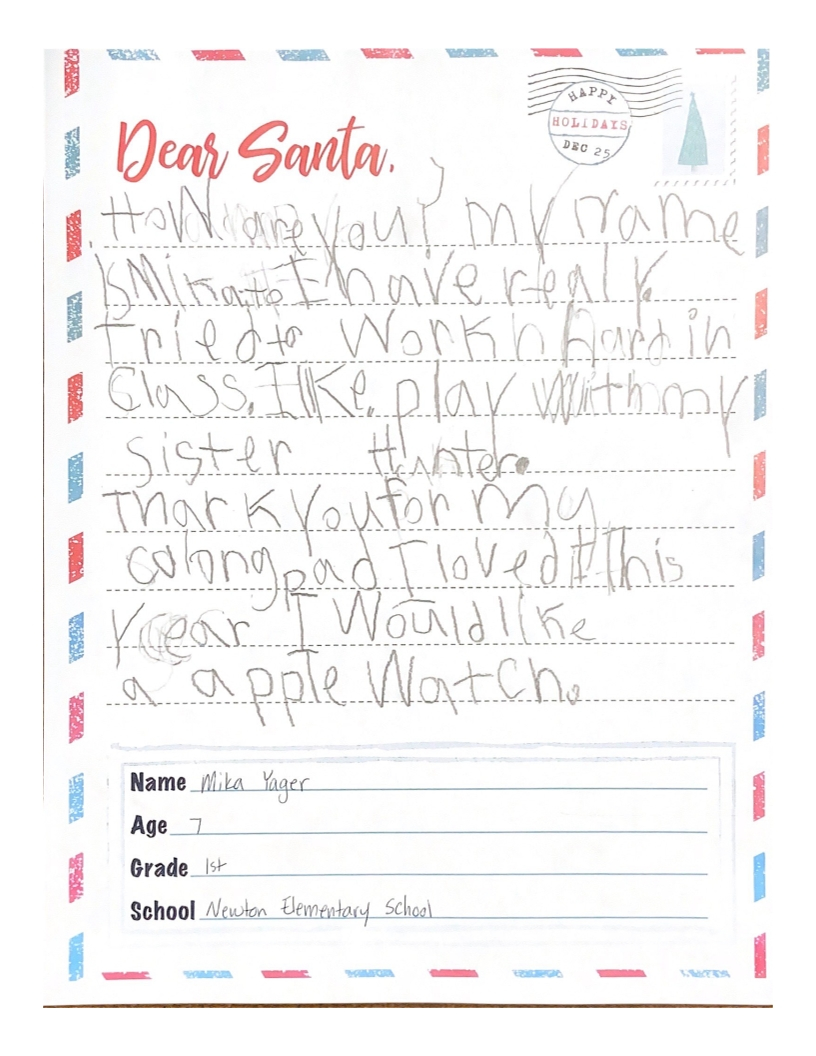 HAPPY
HOLIDAYS
DEC 25
Dear Santa,
How are you? my name
is Mika I have realy
tried to Work h Hard in
Class. I like play With my
sister Hunter.
Thank You for my
coloring pad I loved it This
Year I Would like
a apple Watch.
Name Mika Yager
Age 7
Grade 1st
School Newton Elementary School